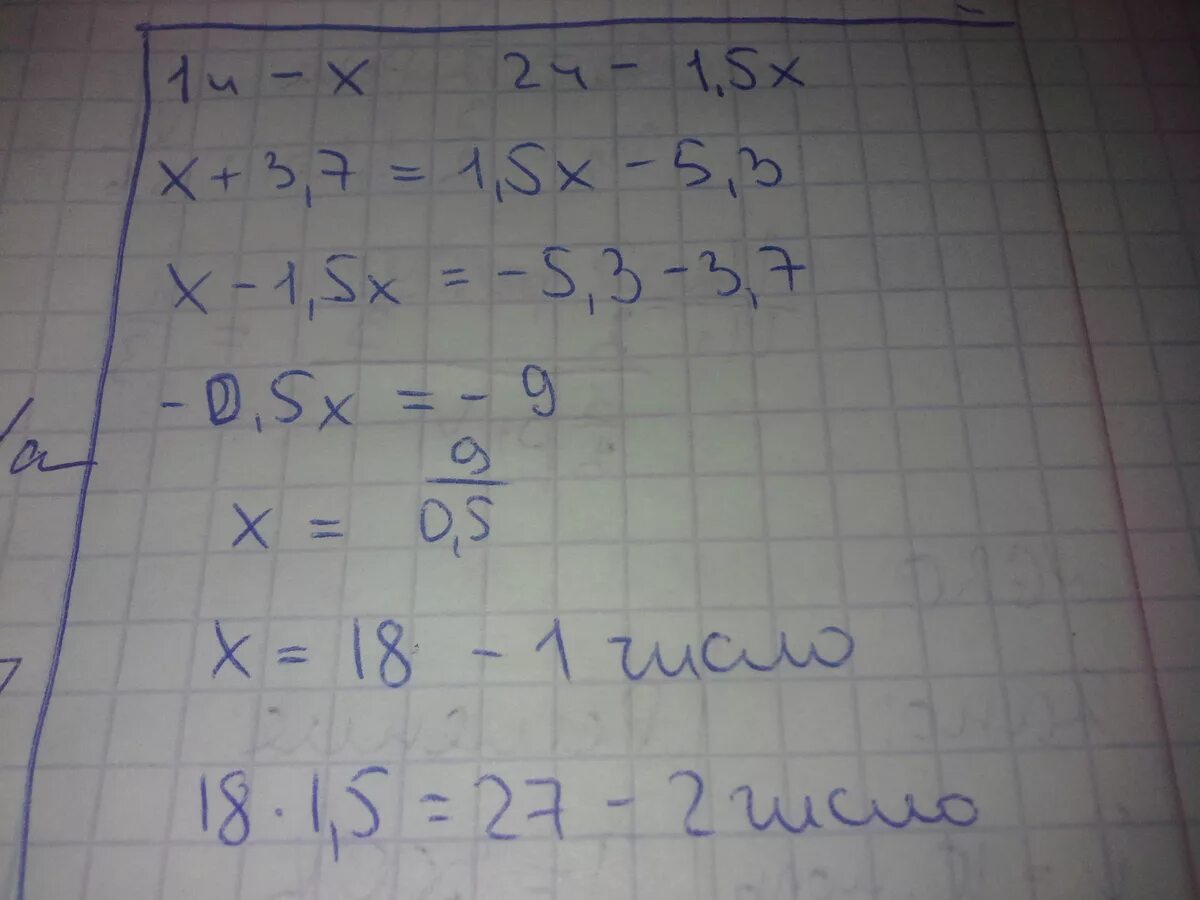 1ч - x 2ч - 1,5x
x + 3,7 = 1,5x - 5,3
x - 1,5x = -5,3 - 3,7
- 0,5x = - 9
x = 9/0,5
x = 18 - 1 число
18 · 1,5 = 27 - 2 число